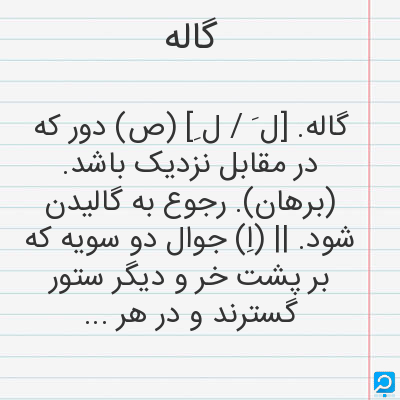 گاله
گاله. [ل َ / ل ِ] (ص) دور که
در مقابل نزدیک باشد.
(برهان). رجوع به گالیدن
شود. || (اِ) جوال دو سویه که
بر پشت خر و دیگر ستور
گسترند و در هر ...